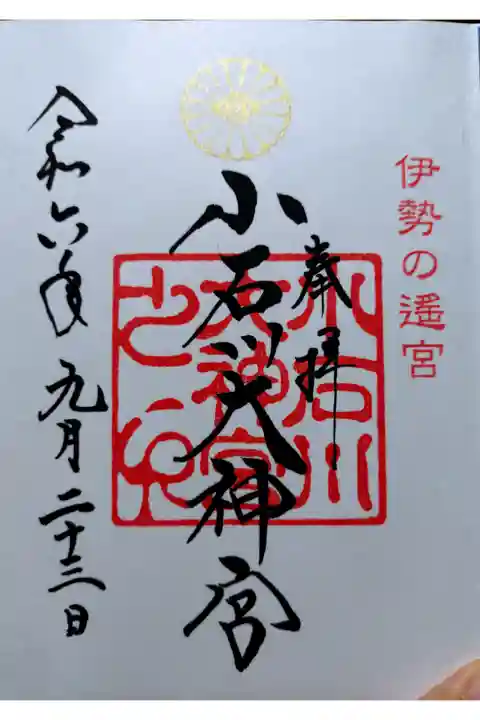 伊勢の遥宮
奉拝
小石川大神宮
小石川
大神宮
之印
令和六年九月二十三日